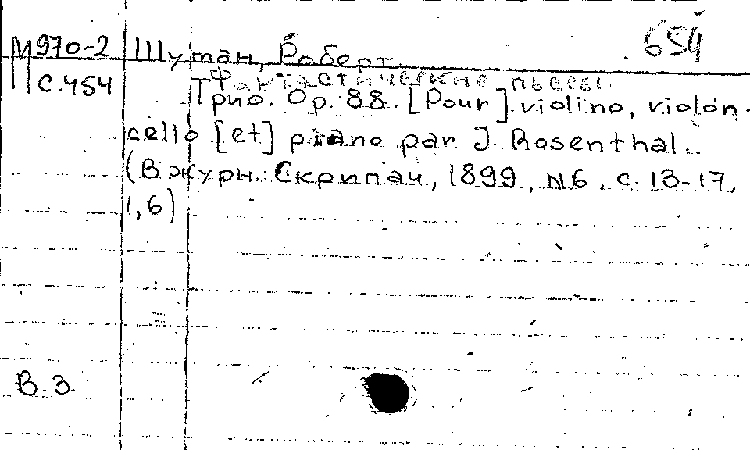 654
М970-2 Шуман, Роберт.
с.454 Фантастические пьесы.
Трио. Op. 88. [Pour] violino, violon-
cello [et] piano par J. Rosenthal.
(В журн. Скрипач, 1899, N6, с. 13-17,
1,6)
В.3